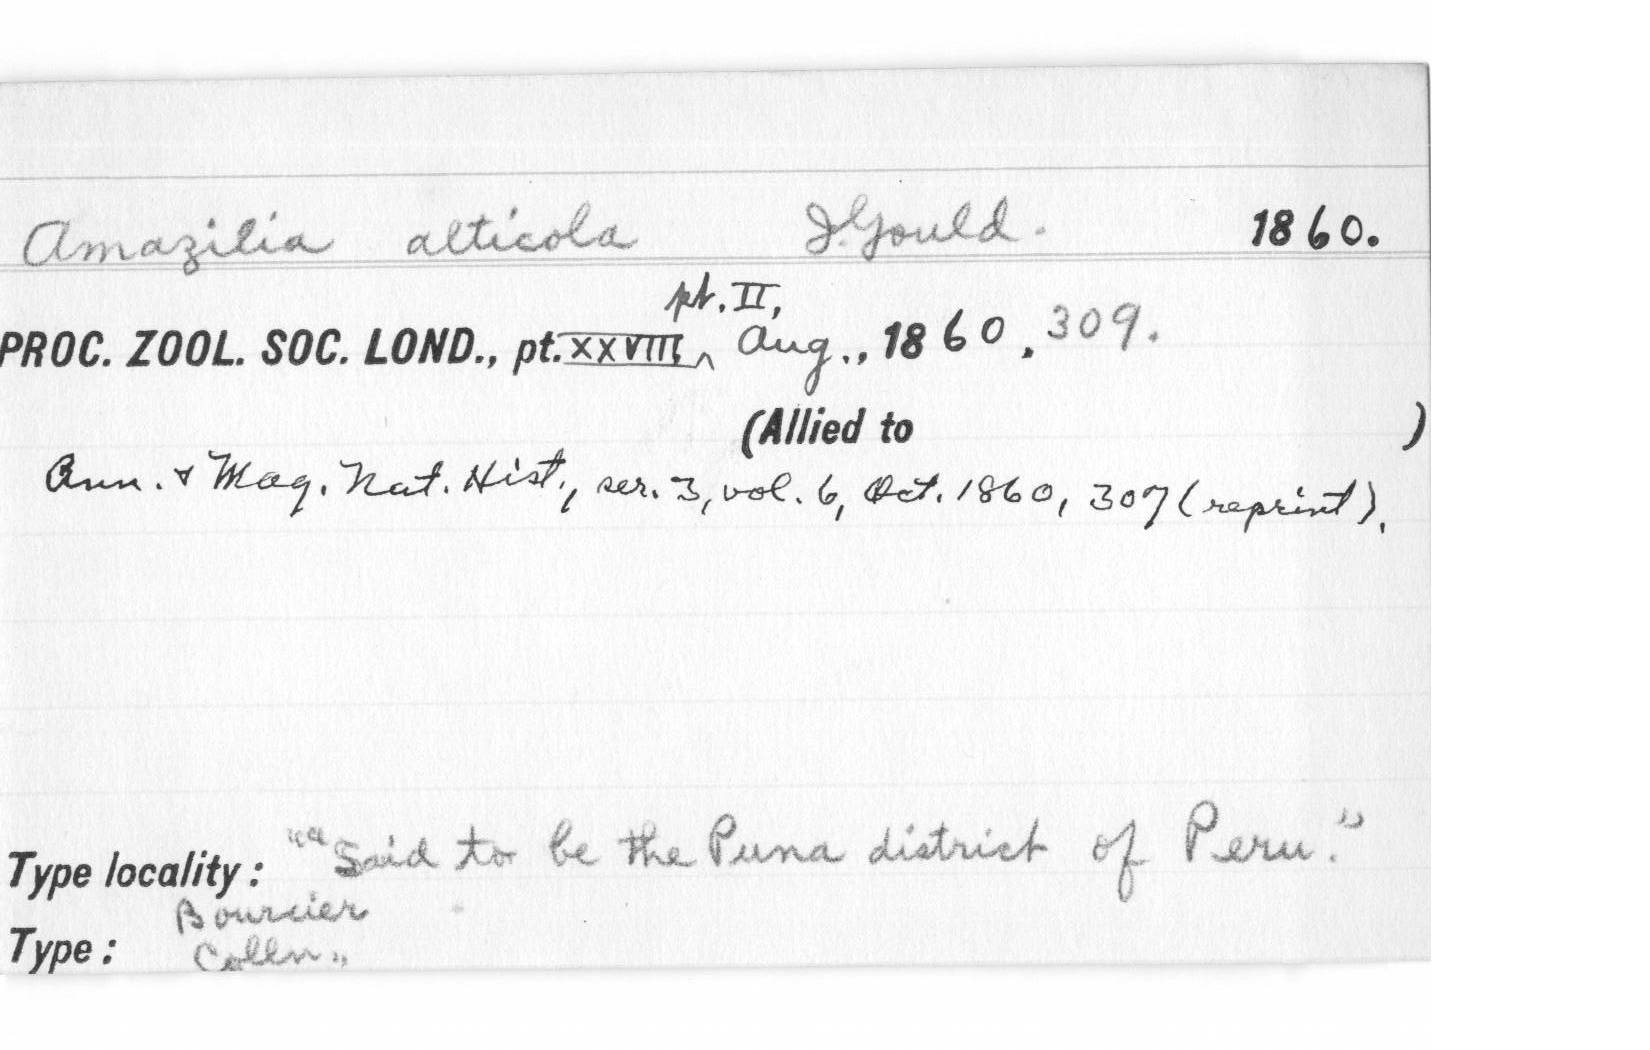 Amazilia alticola J. Gould. 1860.
pt. II,
PROC. ZOOL. SOC. LOND., pt. XXVIII, ^ Aug., 1860, 309.
(Allied to )
Ann. & Mag. Nat. Hist., ser. 3, vol. 6, Oct. 1860, 307 (reprint).
Type locality: "Said to be the Puna district of Peru."
Bourcier
Type: Colln.